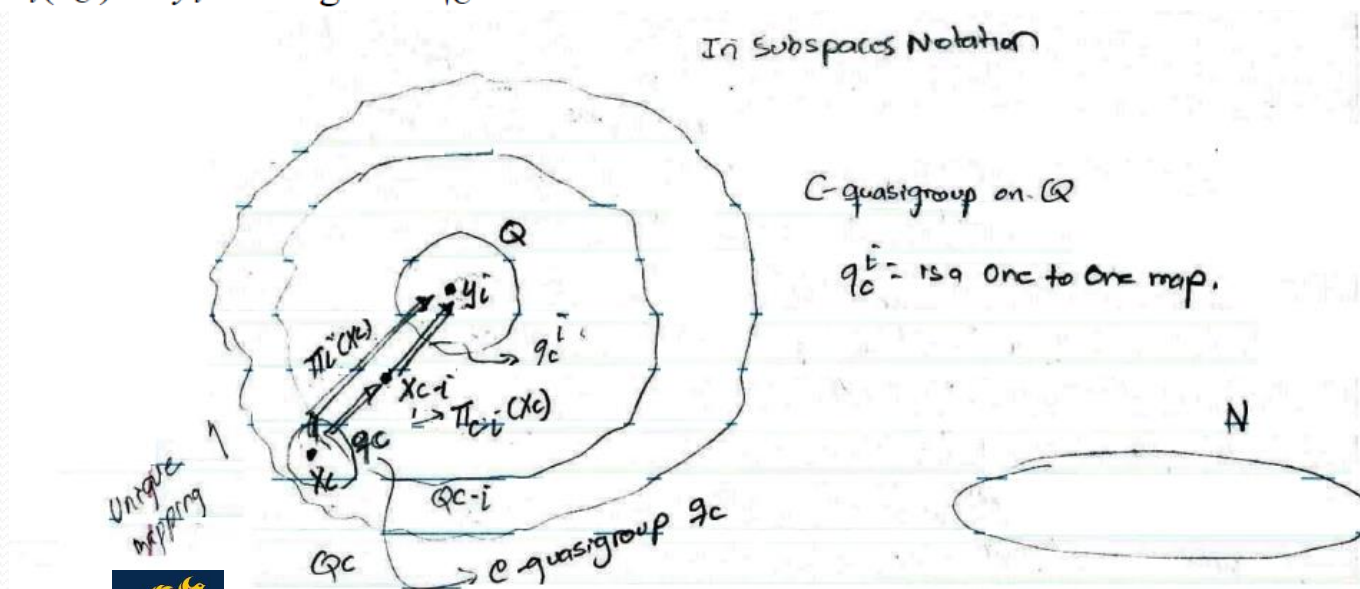 In Subspaces Notation
C-quasigroup on Q
q_c^i = is a One to One map.
Q
y_i
Π_i(x_c)
q_c^i
x_{c-i}
Π_{c-i}(x_c)
N
q_c
x_c
Unique
mapping
Q_{c-i}
Q_c
C-quasigroup q_c